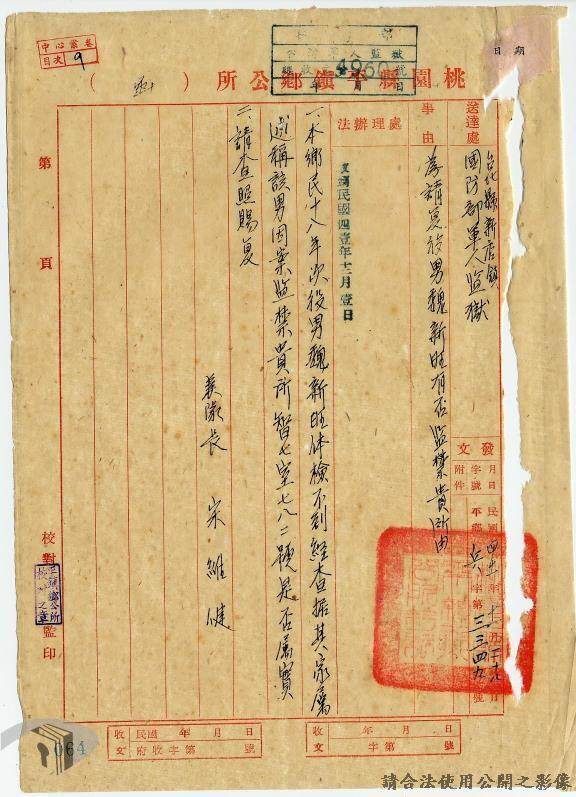 桃園縣平鎮鄉公所（函）
中心崇卷
目次 9
日期
公人監獄
4960號
送達處
台北縣新店鎮
國防部軍人監獄
事由
為請复役男魏新旺有否監禁貴所由
發文
月日
字號
附件
民國四十年十二月二十六日
平鄉兵字第三三四九號
處理辦法
中華民國四壹年十二月壹日
一、本鄉民十八年次役男魏新旺体檢不到經查據其家屬
述稱該男因案監禁貴所智七室七八二號是否屬實
二、請查照賜复
義鄉長 宋維健
第頁
校對
監印
平鎮鄉公所
校之章
收文 民國年月日
附收字第號
收文 年月日
字第號
064
請合法使用公開之影像